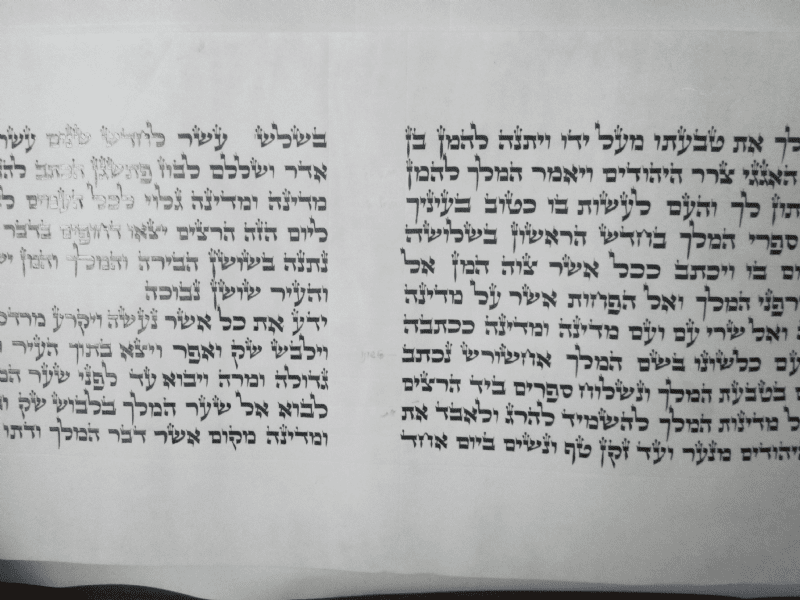 לך את טבעתו מעל ידו ויתנה להמן בן
האגגי צרר היהודים ויאמר המלך להמן
תון לך והעם לעשות בו כטוב בעיניך
ספרי המלך בחדש הראשון בשלושה
ום בו ויכתב ככל אשר צוה המן אל
רפני המלך ואל הפחות אשר על מדינה
ואל שרי עם ועם מדינה ומדינה ככתבה
עם כלשונו בשם המלך אחשורש נכתב
ם בטבעת המלך ונשלוח ספרים ביד הרצים
ל מדינות המלך להשמיד להרג ולאבד את
יהודים מנער ועד זקן טף ונשים ביום אחד
בשלש עשר לחדש שנים עשר
אדר ושללם לבוז פתשגן הכתב להנ
מדינה ומדינה גלוי לכל העמים
ליום הזה הרצים יצאו דחופים בדבר
נתנה בשושן הבירה והמלך והמן יש
והעיר שושן נבוכה
ידע את כל אשר נעשה ויקרע מרדכ
וילבש שק ואפר ויצא בתוך העיר ו
גדולה ומרה ויבוא עד לפני שער המ
לבוא אל שער המלך בלבוש שק
ומדינה מקום אשר דבר המלך ודתו